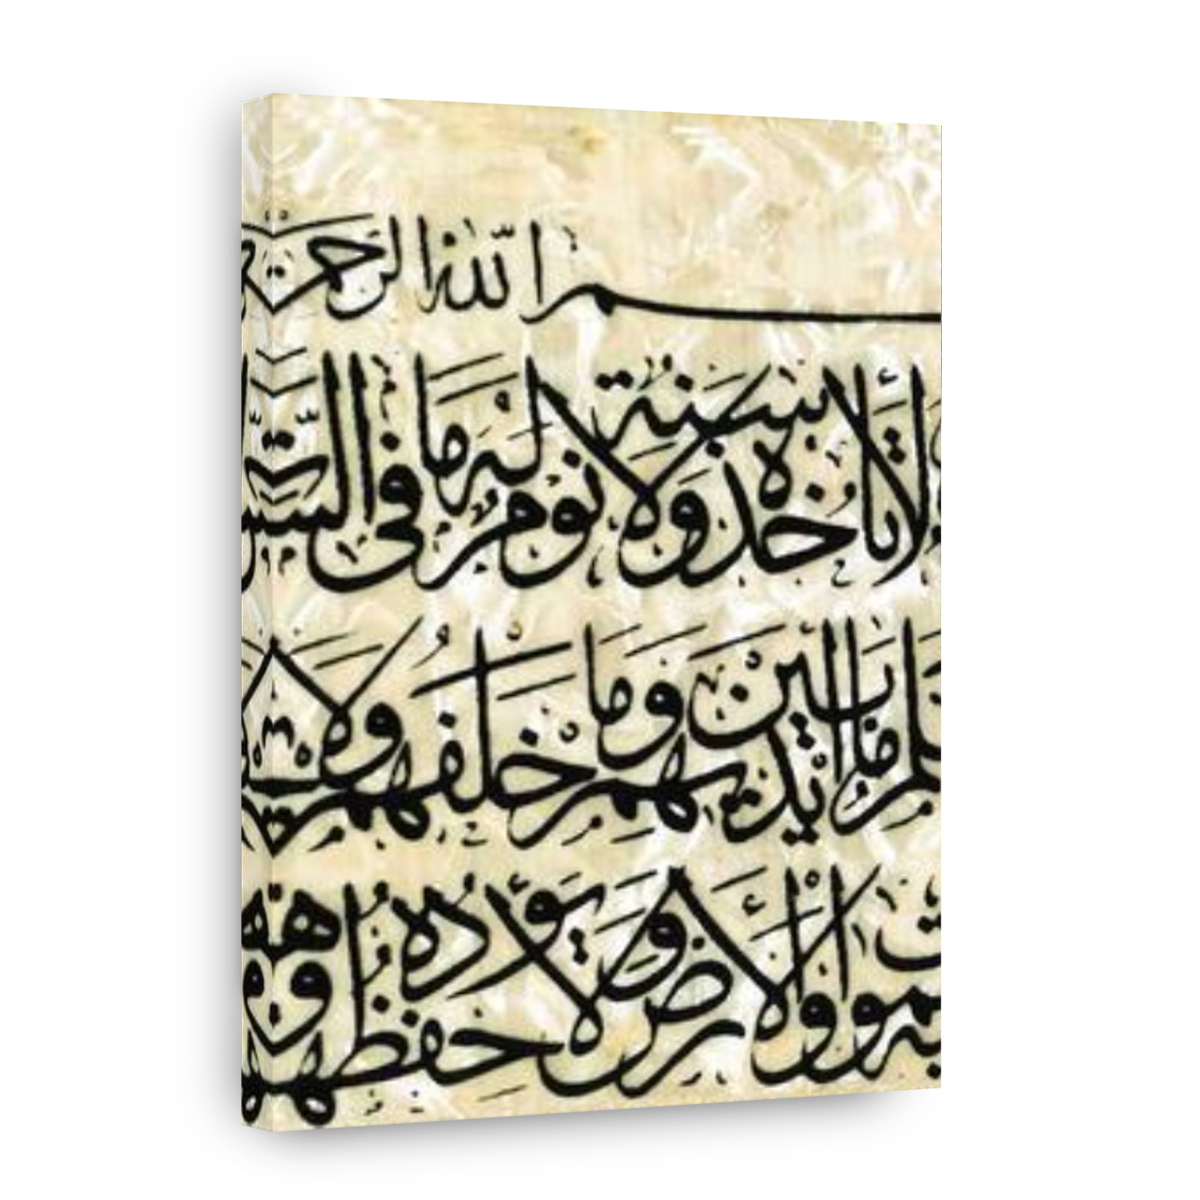 سم الله الرحمن
لا تأخذه سنة ولا نوم له ما في الس
لم ما بين أيديهم وما خلفهم ولا
موات والأرض ولا يؤده حفظهما وهو